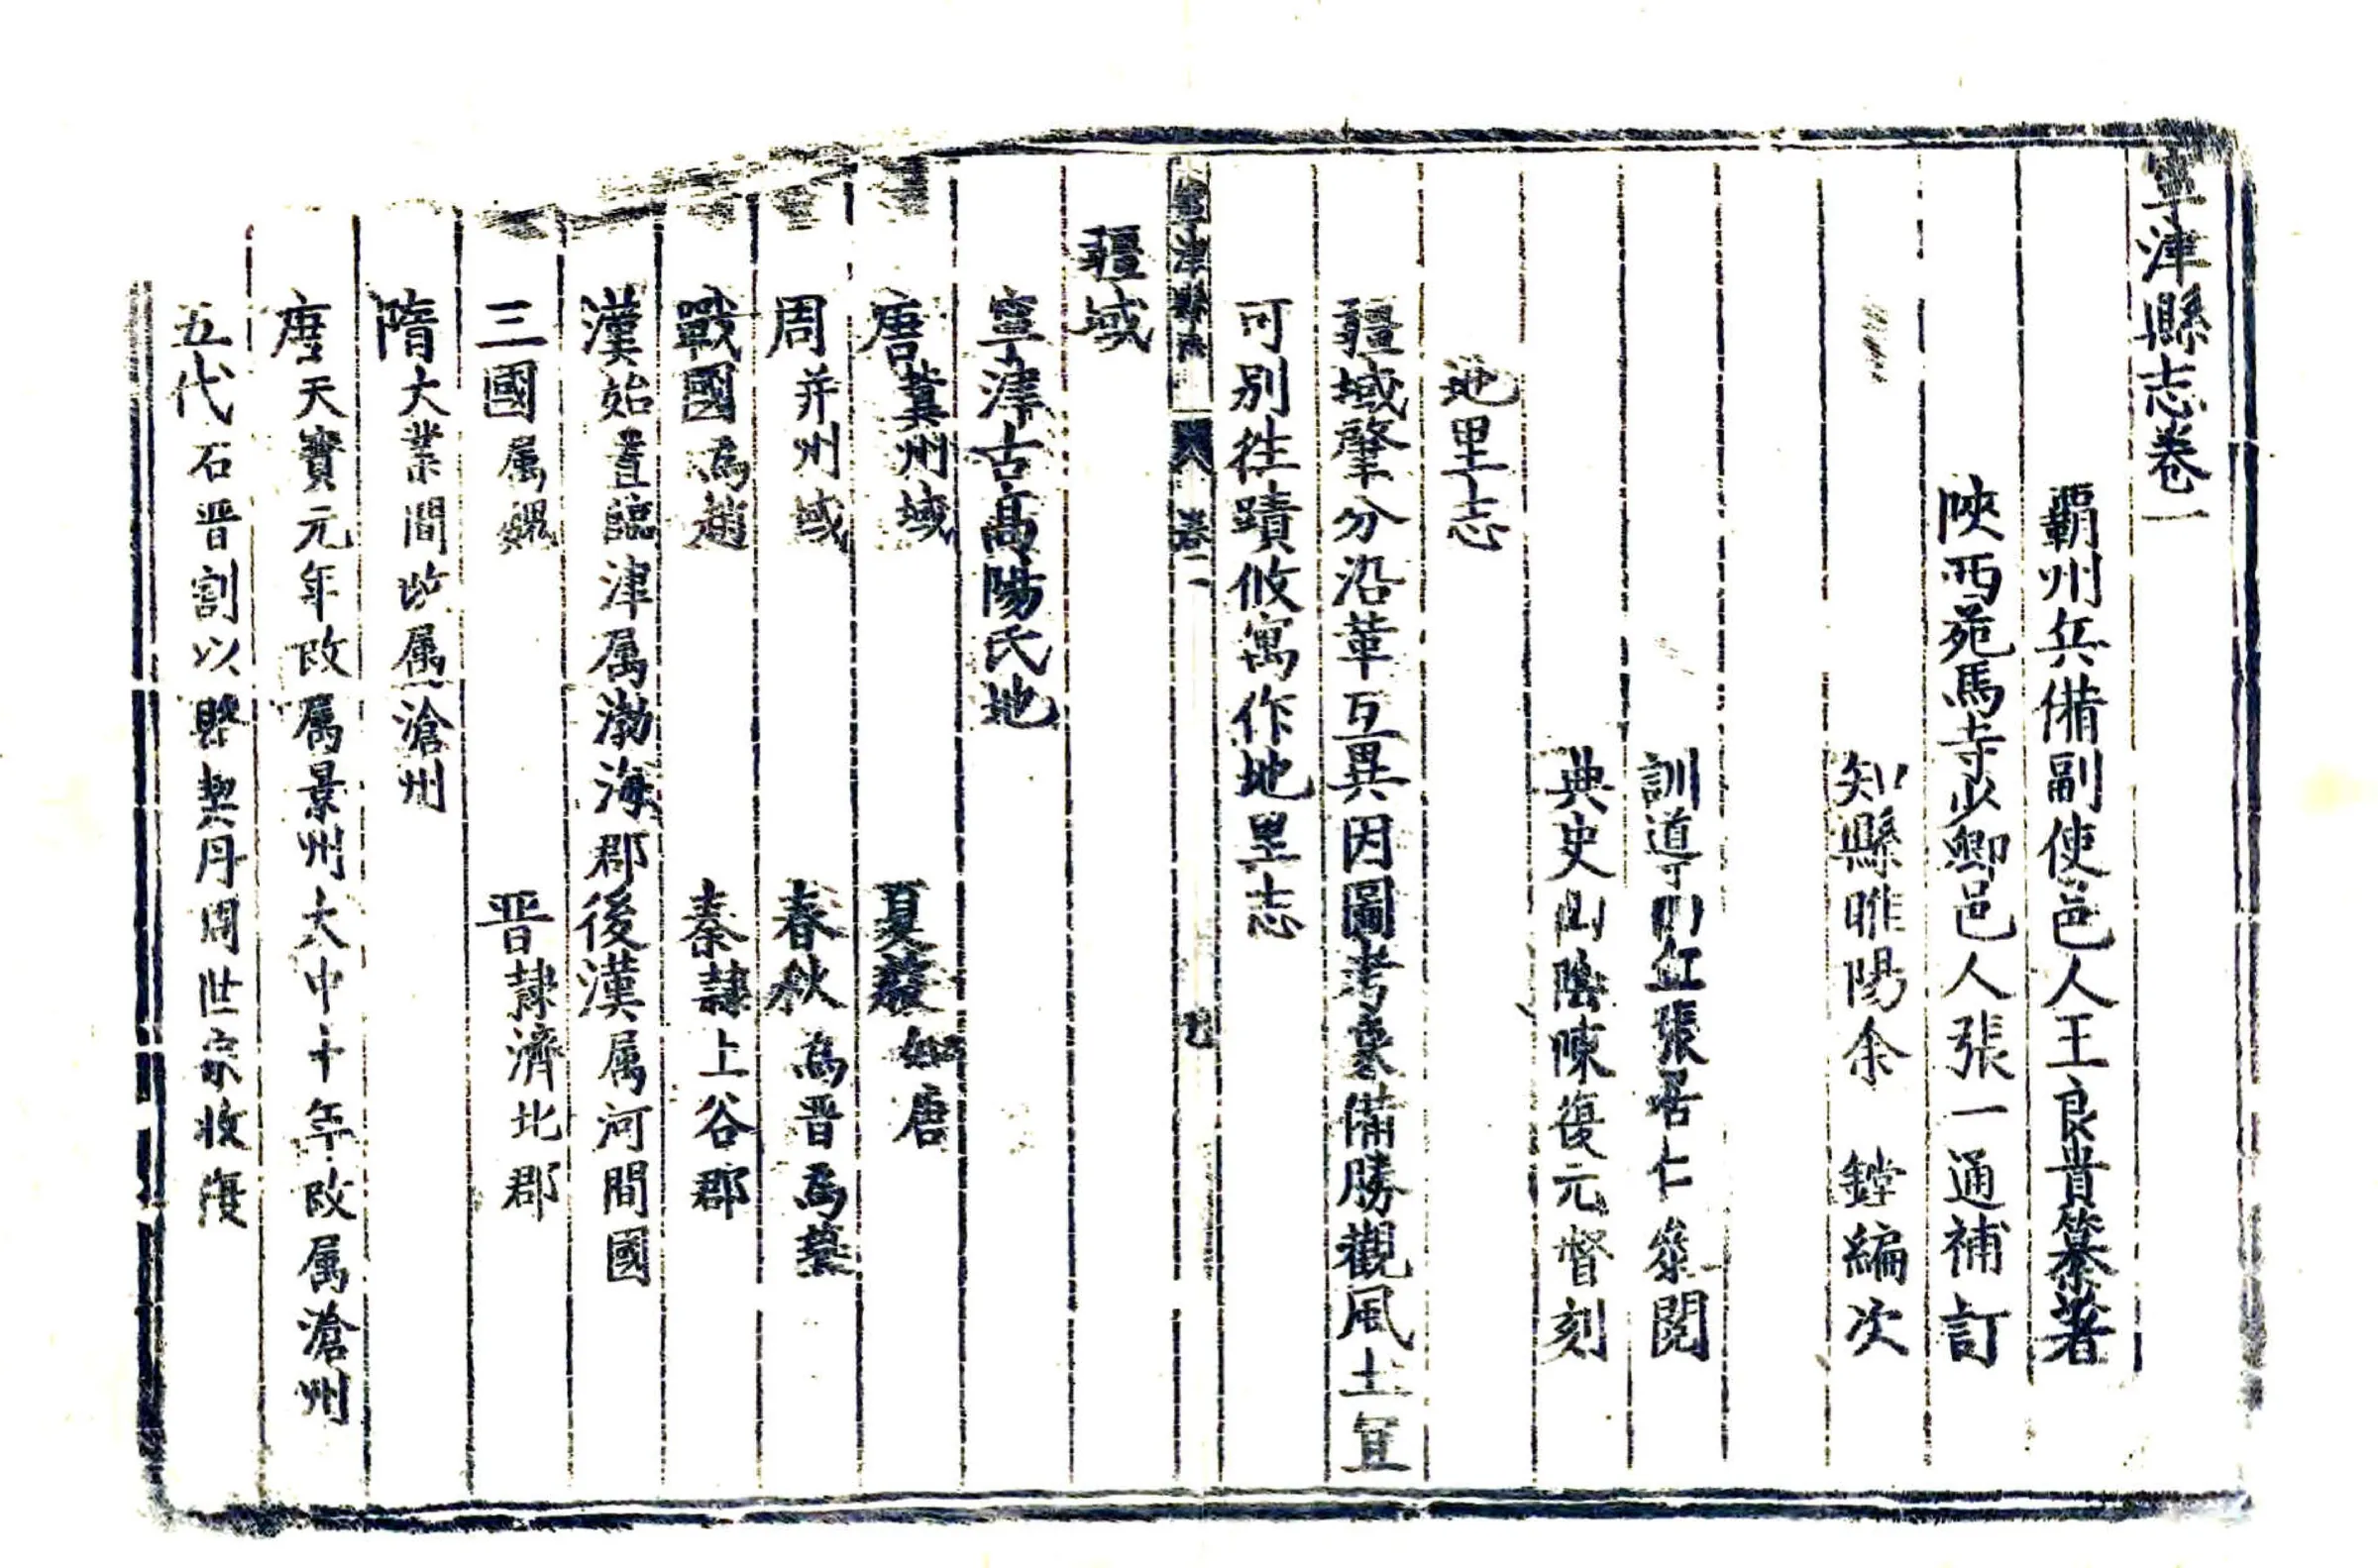 寧津縣志卷一
霸州兵備副使邑人王良貴纂著
陝西苑馬寺少卿邑人張一通補訂
知縣睢陽余 鏜編次
訓導 張居仁叅閱
典史山陰陳復元督刻
地里志
疆域肇分沿革互異因圖考裏備勝觀風土宜
可別徃蹟攸寓作地里志
寧津縣志 卷一
疆域
寧津古高陽氏地
唐冀州域 夏 如唐
周并州域 春秋為晋為
戰國為趙 秦隸上谷郡
漢始置臨津属渤海郡後漢属河間國
三國属魏 晋隸濟北郡
隋大業間改属滄州
唐天寶元年改属景州大中十年改属滄州
五代石晋割以賂契丹周世宗收復